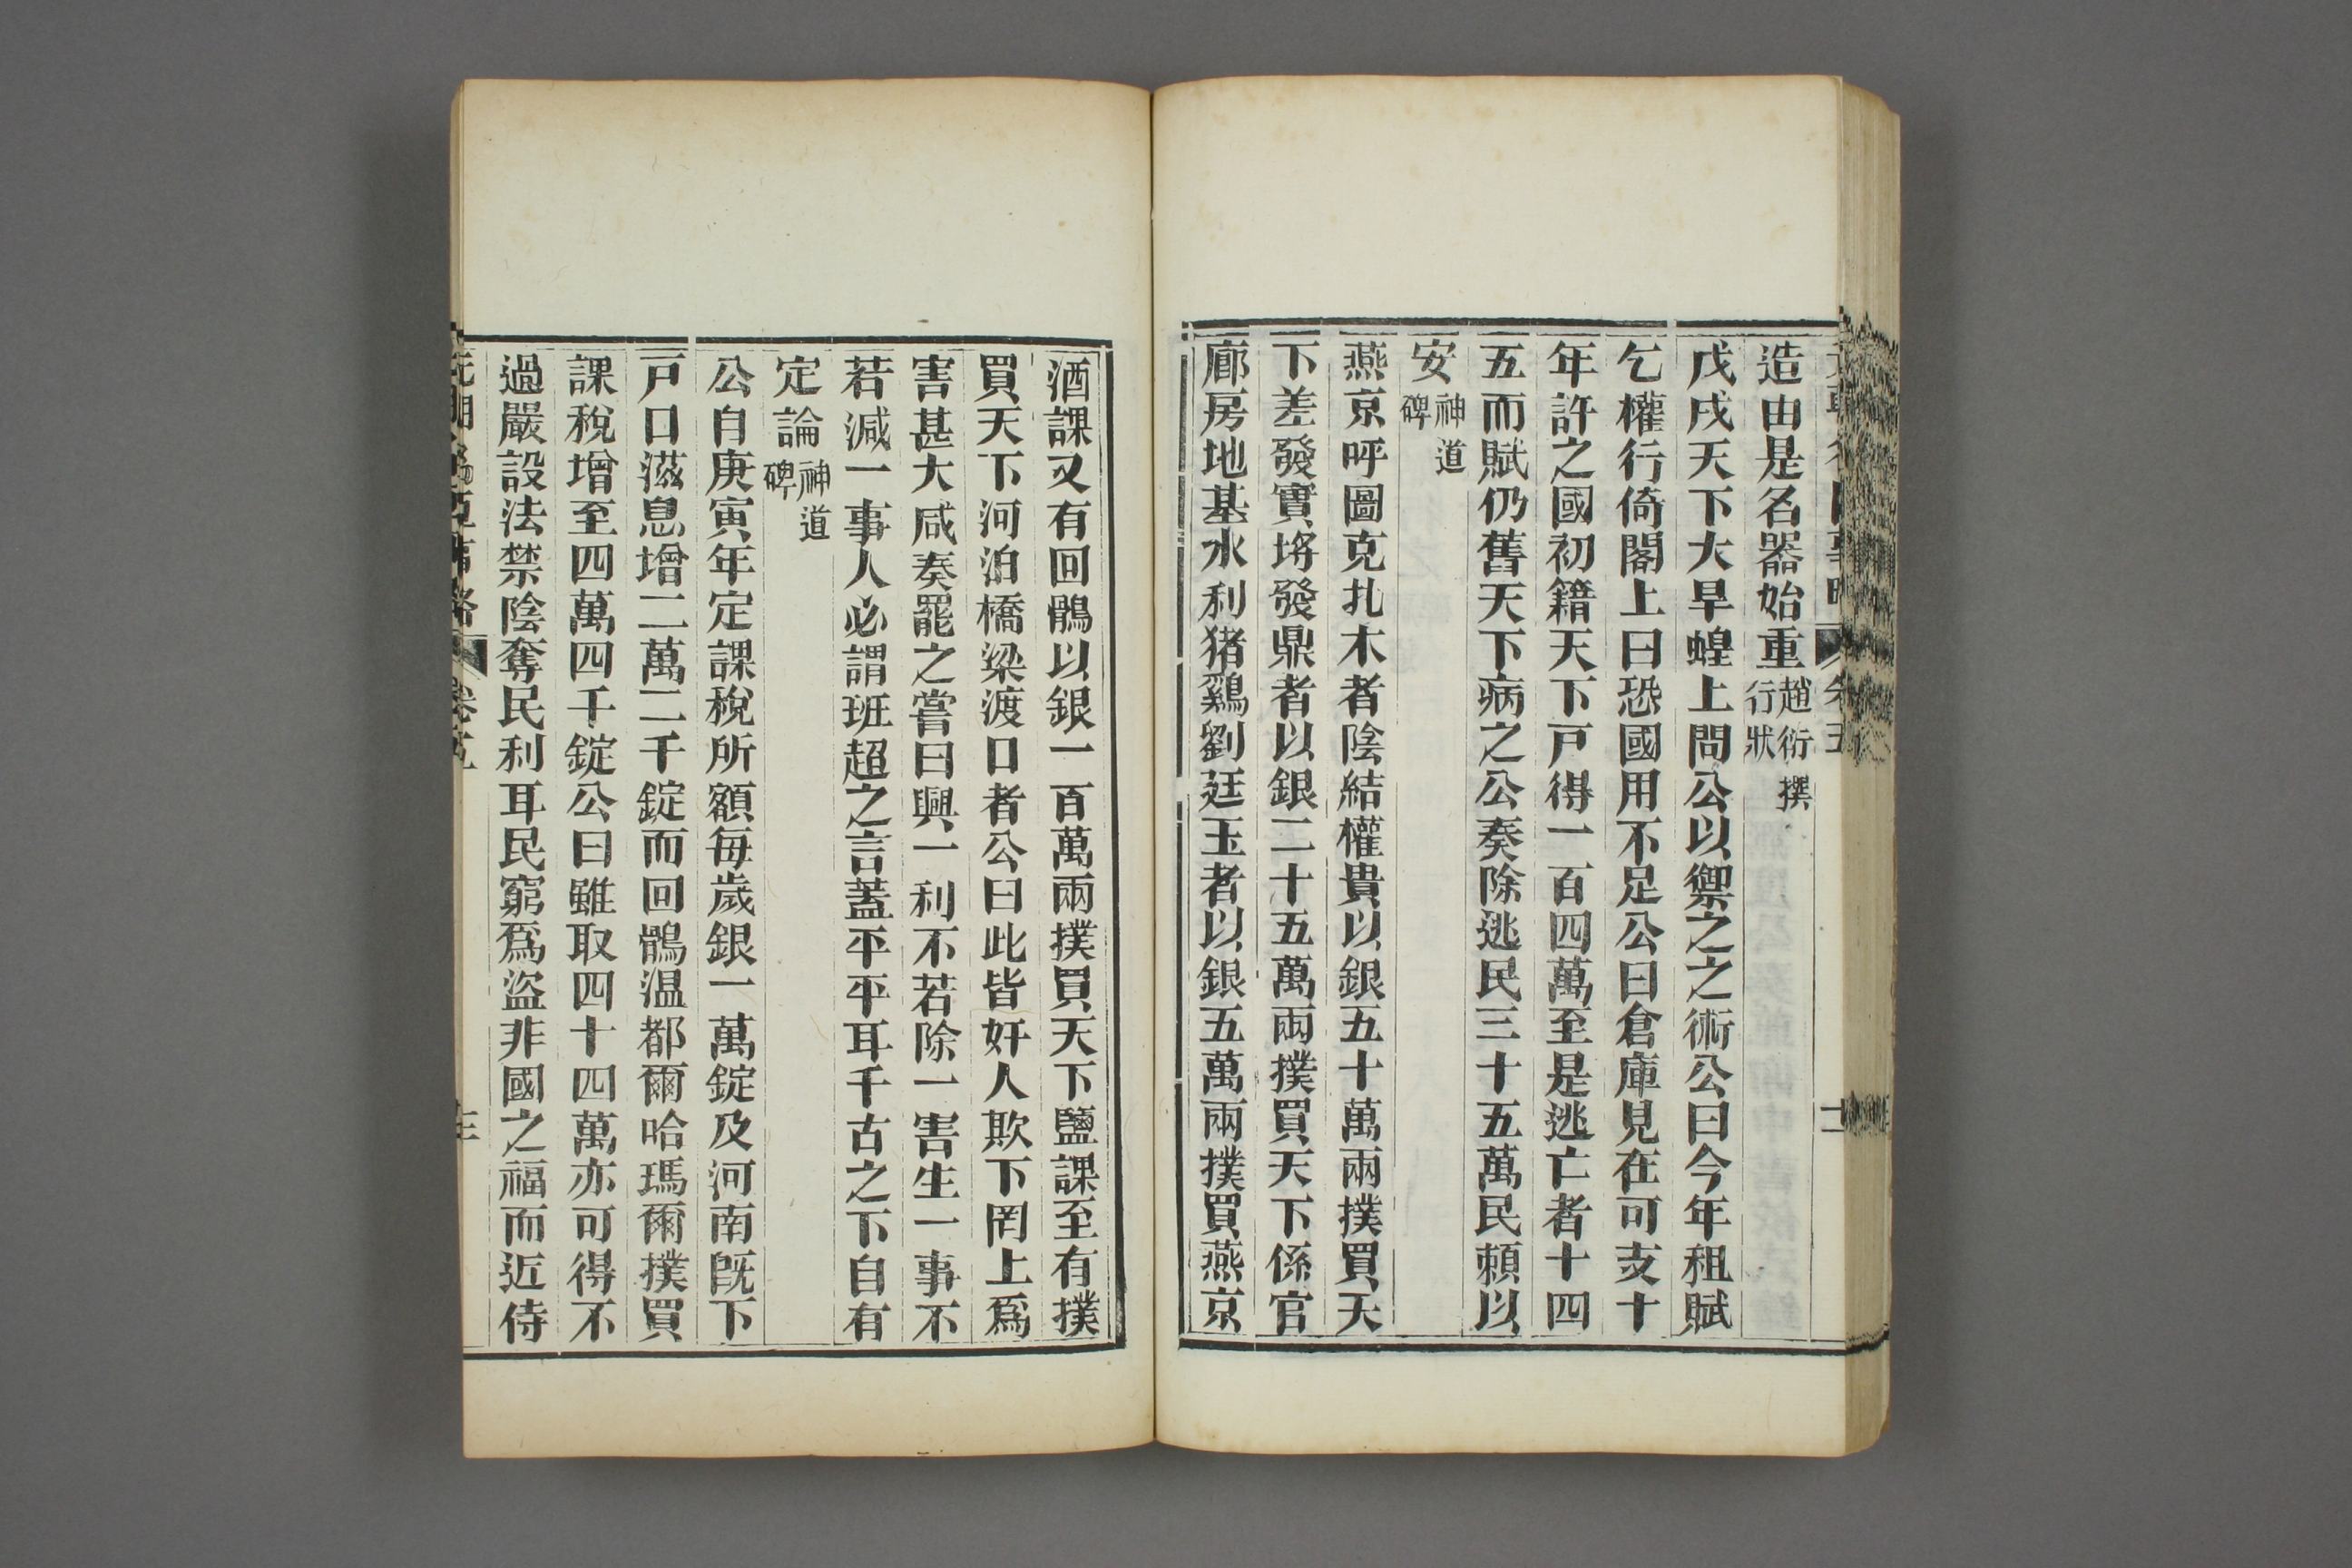 造由是名器始重趙衍撰行狀
戊戌天下大旱蝗上問公以禦之之術公曰今年租賦
乞權行倚閣上曰恐國用不足公曰倉庫見在可支十
年許之國初籍天下戸得一百四萬至是逃亡者十四
五而賦仍舊天下病之公奏除逃民三十五萬民頼以
安神道碑
燕京呼圖克扎木者陰結權貴以銀五十萬兩撲買天
下差發實埒發鼎者以銀二十五萬兩撲買天下係官
廊房地基水利猪鷄劉廷玉者以銀五萬兩撲買燕京
酒課又有回鶻以銀一百萬兩撲買天下鹽課至有撲
買天下河泊橋梁渡口者公曰此皆奸人欺下罔上爲
害甚大咸奏罷之嘗曰興一利不若除一害生一事不
若減一事人必謂班超之言蓋平平耳千古之下自有
定論神道碑
公自庚寅年定課稅所額每歲銀一萬錠及河南旣下
戸口滋息增二萬二千錠而回鶻温都爾哈瑪爾撲買
課稅增至四萬四千錠公曰雖取四十四萬亦可得不
過嚴設法禁陰奪民利耳民窮爲盜非國之福而近侍
卷五